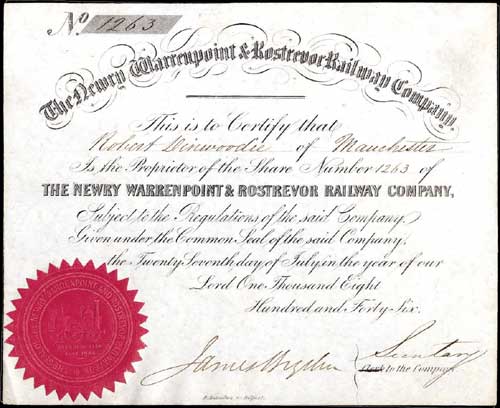 No. 1263
The Newry Warrenpoint & Rostrevor Railway Company.
This is to Certify that
Robert Dinwoodie of Manchester
Is the Proprietor of the Share Number 1263 of
THE NEWRY WARRENPOINT & ROSTREVOR RAILWAY COMPANY,
Subject to the Regulations of the said Company,
Given under the Common Seal of the said Company,
the Twenty Seventh day of July in the year of our
Lord One Thousand Eight
Hundred and Forty Six.
James Secretary
Clerk to the Company